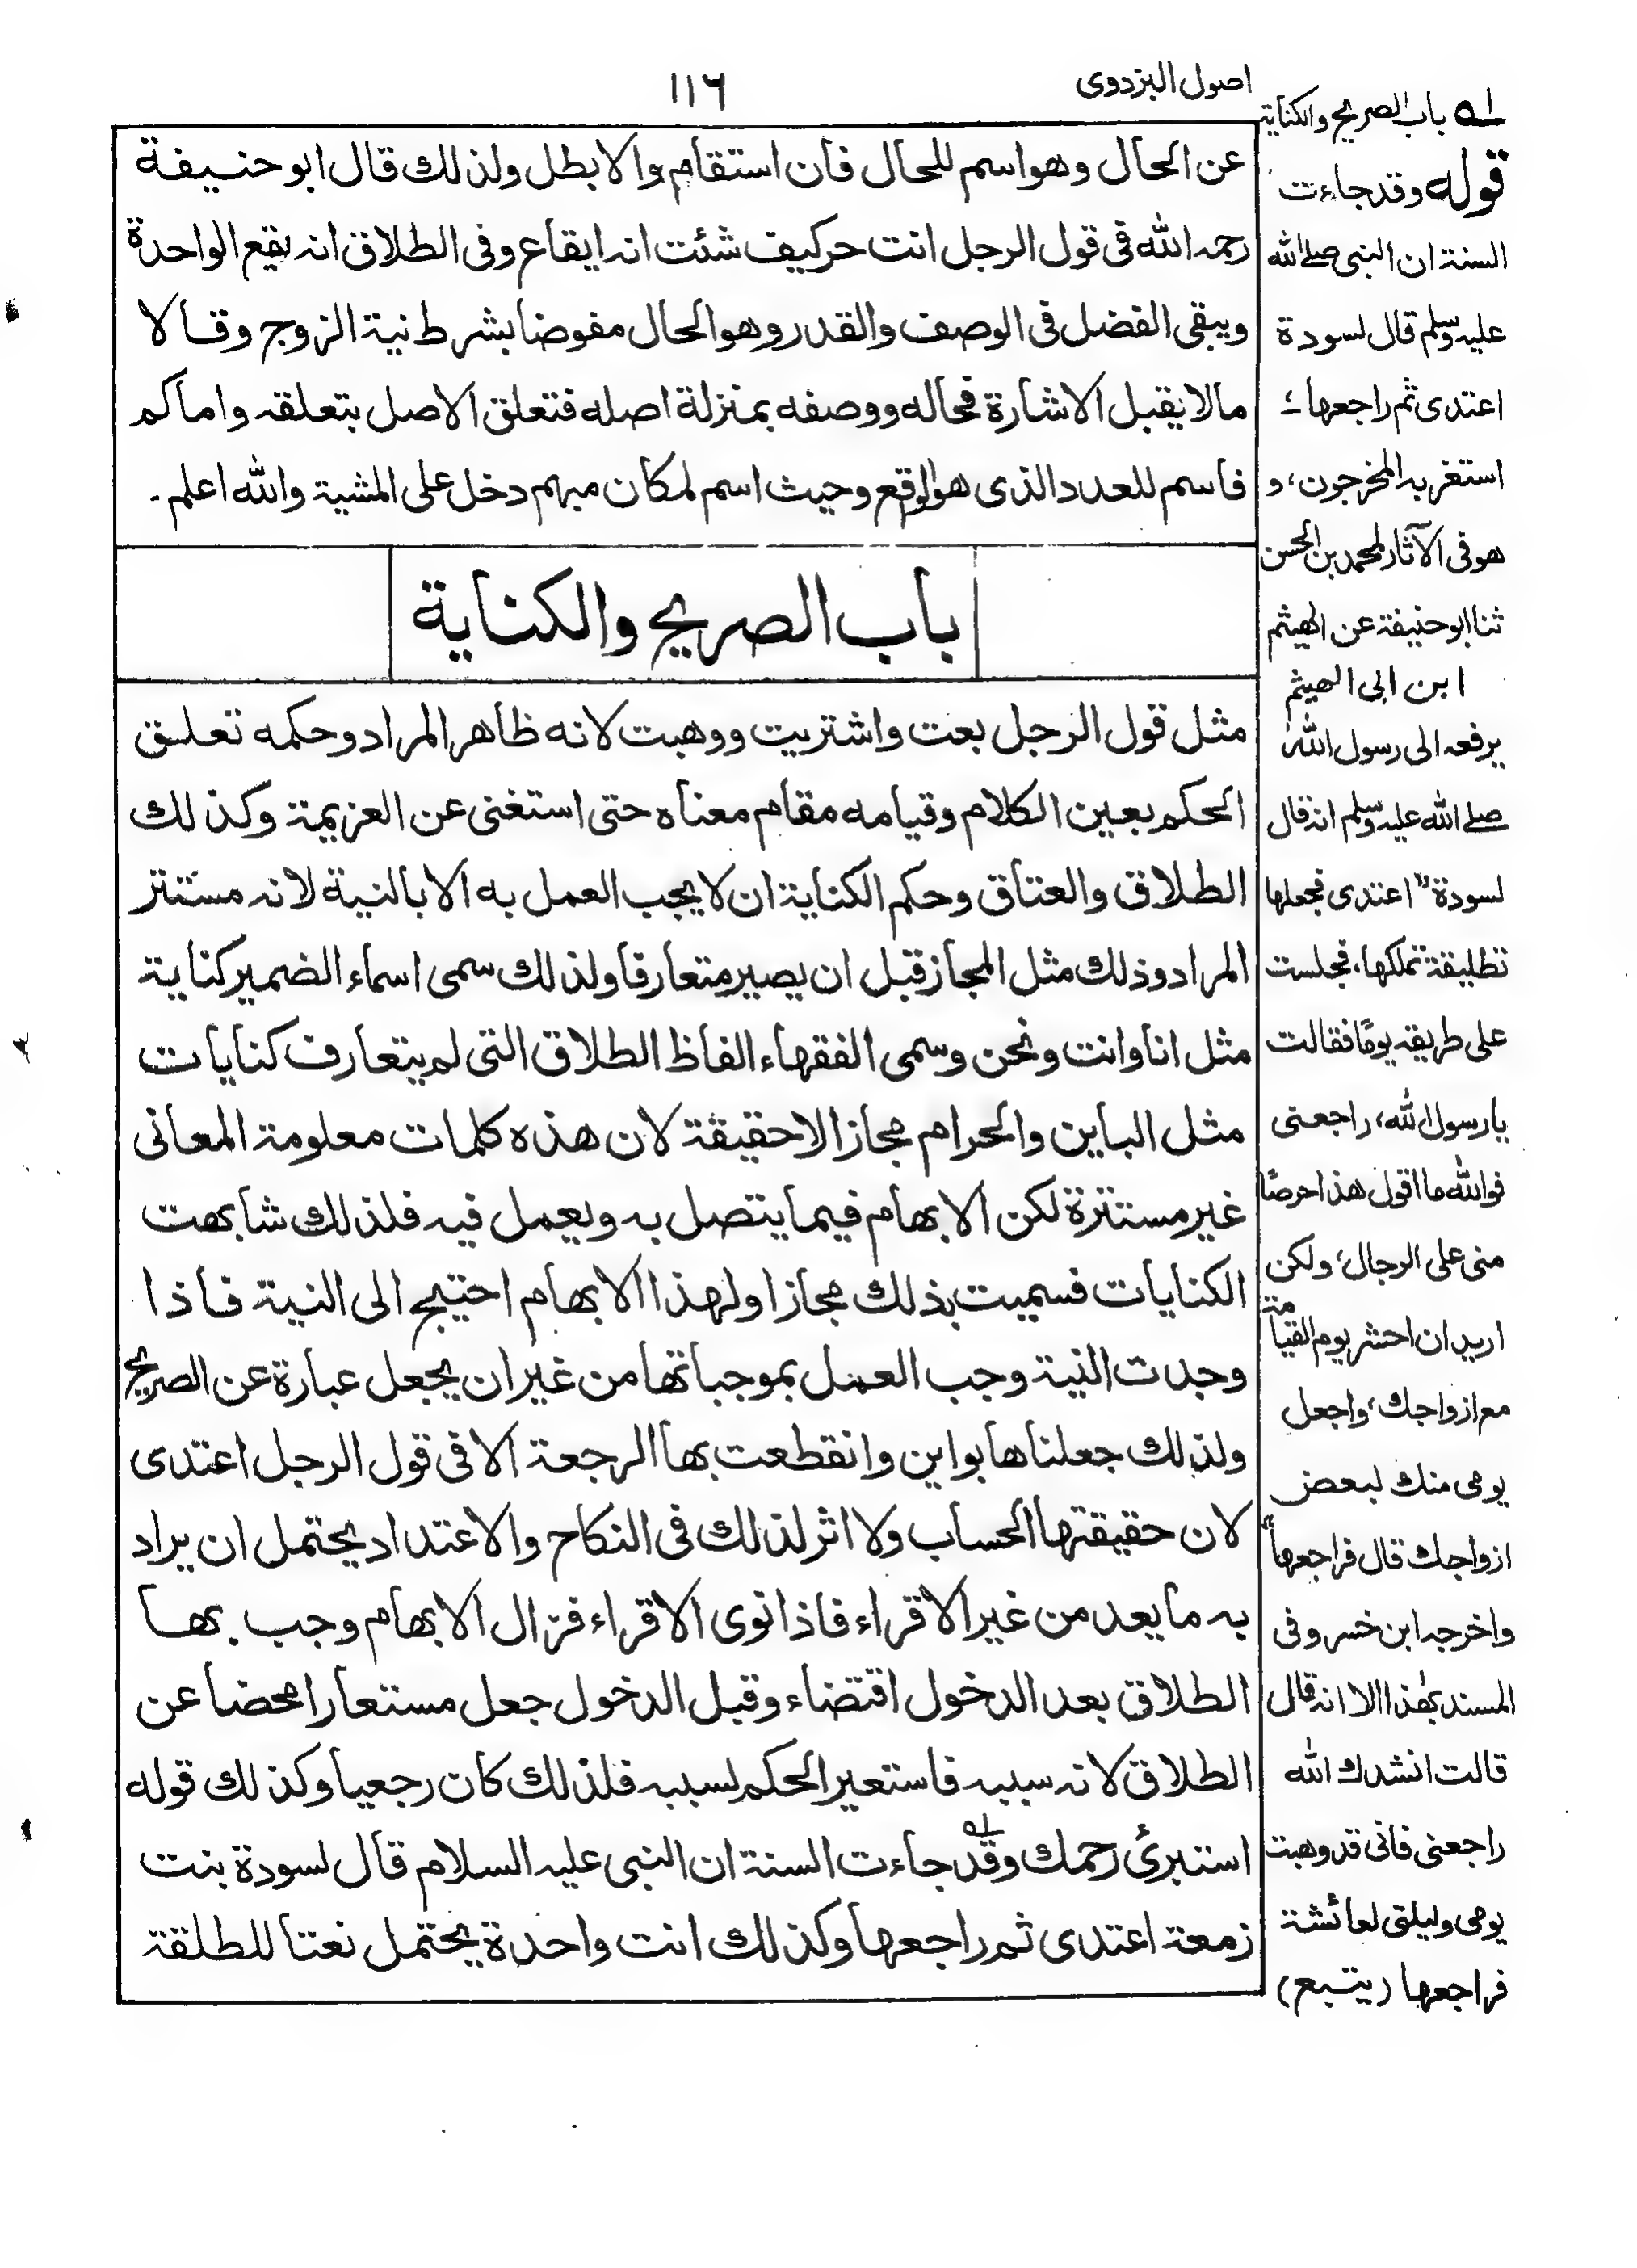 اصول البزدوى
١١٦
عن الحال وهو اسم للحال فان استقام والا بطل ولذلك قال ابو حنيفة
رحمه الله فى قول الرجل انت حر كيف شئت انه ايقاع وفى الطلاق انه يقع الواحدة
ويبقى الفضل فى الوصف والقدر وهو الحال مفوضا بشرط نية الزوج وقالا
مالا يقبل الاشارة فحاله ووصفه بمنزلة اصله فتعلق الاصل بتعلقه واما كم
فاسم للعدد الذى هو الواقع وحيث اسم لمكان مبهم دخل على المشية والله اعلم۔
باب الصريح والكناية
مثل قول الرجل بعت واشتريت ووهبت لانه ظاهر المراد وحكمه تعلق
الحكم بعين الكلام وقيامه مقام معناه حتى استغنى عن العزيمة وكذلك
الطلاق والعتاق وحكم الكناية ان لا يجب العمل به الا بالنية لانه مستتر
المراد وذلك مثل المجاز قبل ان يصير متعارفا ولذلك سمى اسماء الضمير كناية
مثل انا وانت ونحن وسمى الفقهاء الفاظ الطلاق التى لم يتعارف كنايات
مثل الباين والحرام مجازا لا حقيقة لان هذه كلمات معلومة المعانى
غير مستترة لكن الابهام فيما يتصل به ويعمل فيه فلذلك شابهت
الكنايات فسميت بذلك مجازا ولهذا الابهام احتيج الى النية فاذا
وجدت النية وجب العمل بموجباتها من غير ان يجعل عبارة عن الصريح
ولذلك جعلناها بواين وانقطعت بها الرجعة الا فى قول الرجل اعتدى
لان حقيقتها الحساب ولا اثر لذلك فى النكاح والاعتداد يحتمل ان يراد
به ما يعد من غير الاقراء فاذا نوى الاقراء فزال الابهام وجب بها
الطلاق بعد الدخول اقتضاء وقبل الدخول جعل مستعارا محضا عن
الطلاق لانه سببه فاستعير الحكم لسببه فلذلك كان رجعيا وكذلك قوله
استبرئ رحمك وقد ؎١ جاءت السنة ان النبى عليه السلام قال لسودة بنت
زمعة اعتدى ثم راجعها وكذلك انت واحدة يحتمل نعتا للطلقة
؎١ باب الصريح والكناية
قوله وقد جاءت
السنة ان النبى صلى الله
عليه وسلم قال لسودة
اعتدى ثم راجعها؛
استغربه المخرجون، و
هو فى الآثار لمحمد بن الحسن
ثنا ابو حنيفة عن الهيثم
ابن ابى الهيثم
يرفعه الى رسول الله
صلى الله عليه وسلم انه قال
لسودة "اعتدى فجعلها
تطليقة تملكها، فجلست
على طريقه يومًا فقالت
يا رسول الله، راجعنى
فوالله ما اقول هذا حرصًا
منى على الرجال، ولكن
اريد ان احشر يوم القيامة
مع ازواجك، واجعل
يومى منك لبعض
ازواجك قال فراجعها"
واخرجه ابن خسرو فى
المسند بهذا الا انه قال
قالت انشدك الله
راجعنى فانى قد وهبت
يومى وليلتى لعائشة
فراجعها (يتبع)